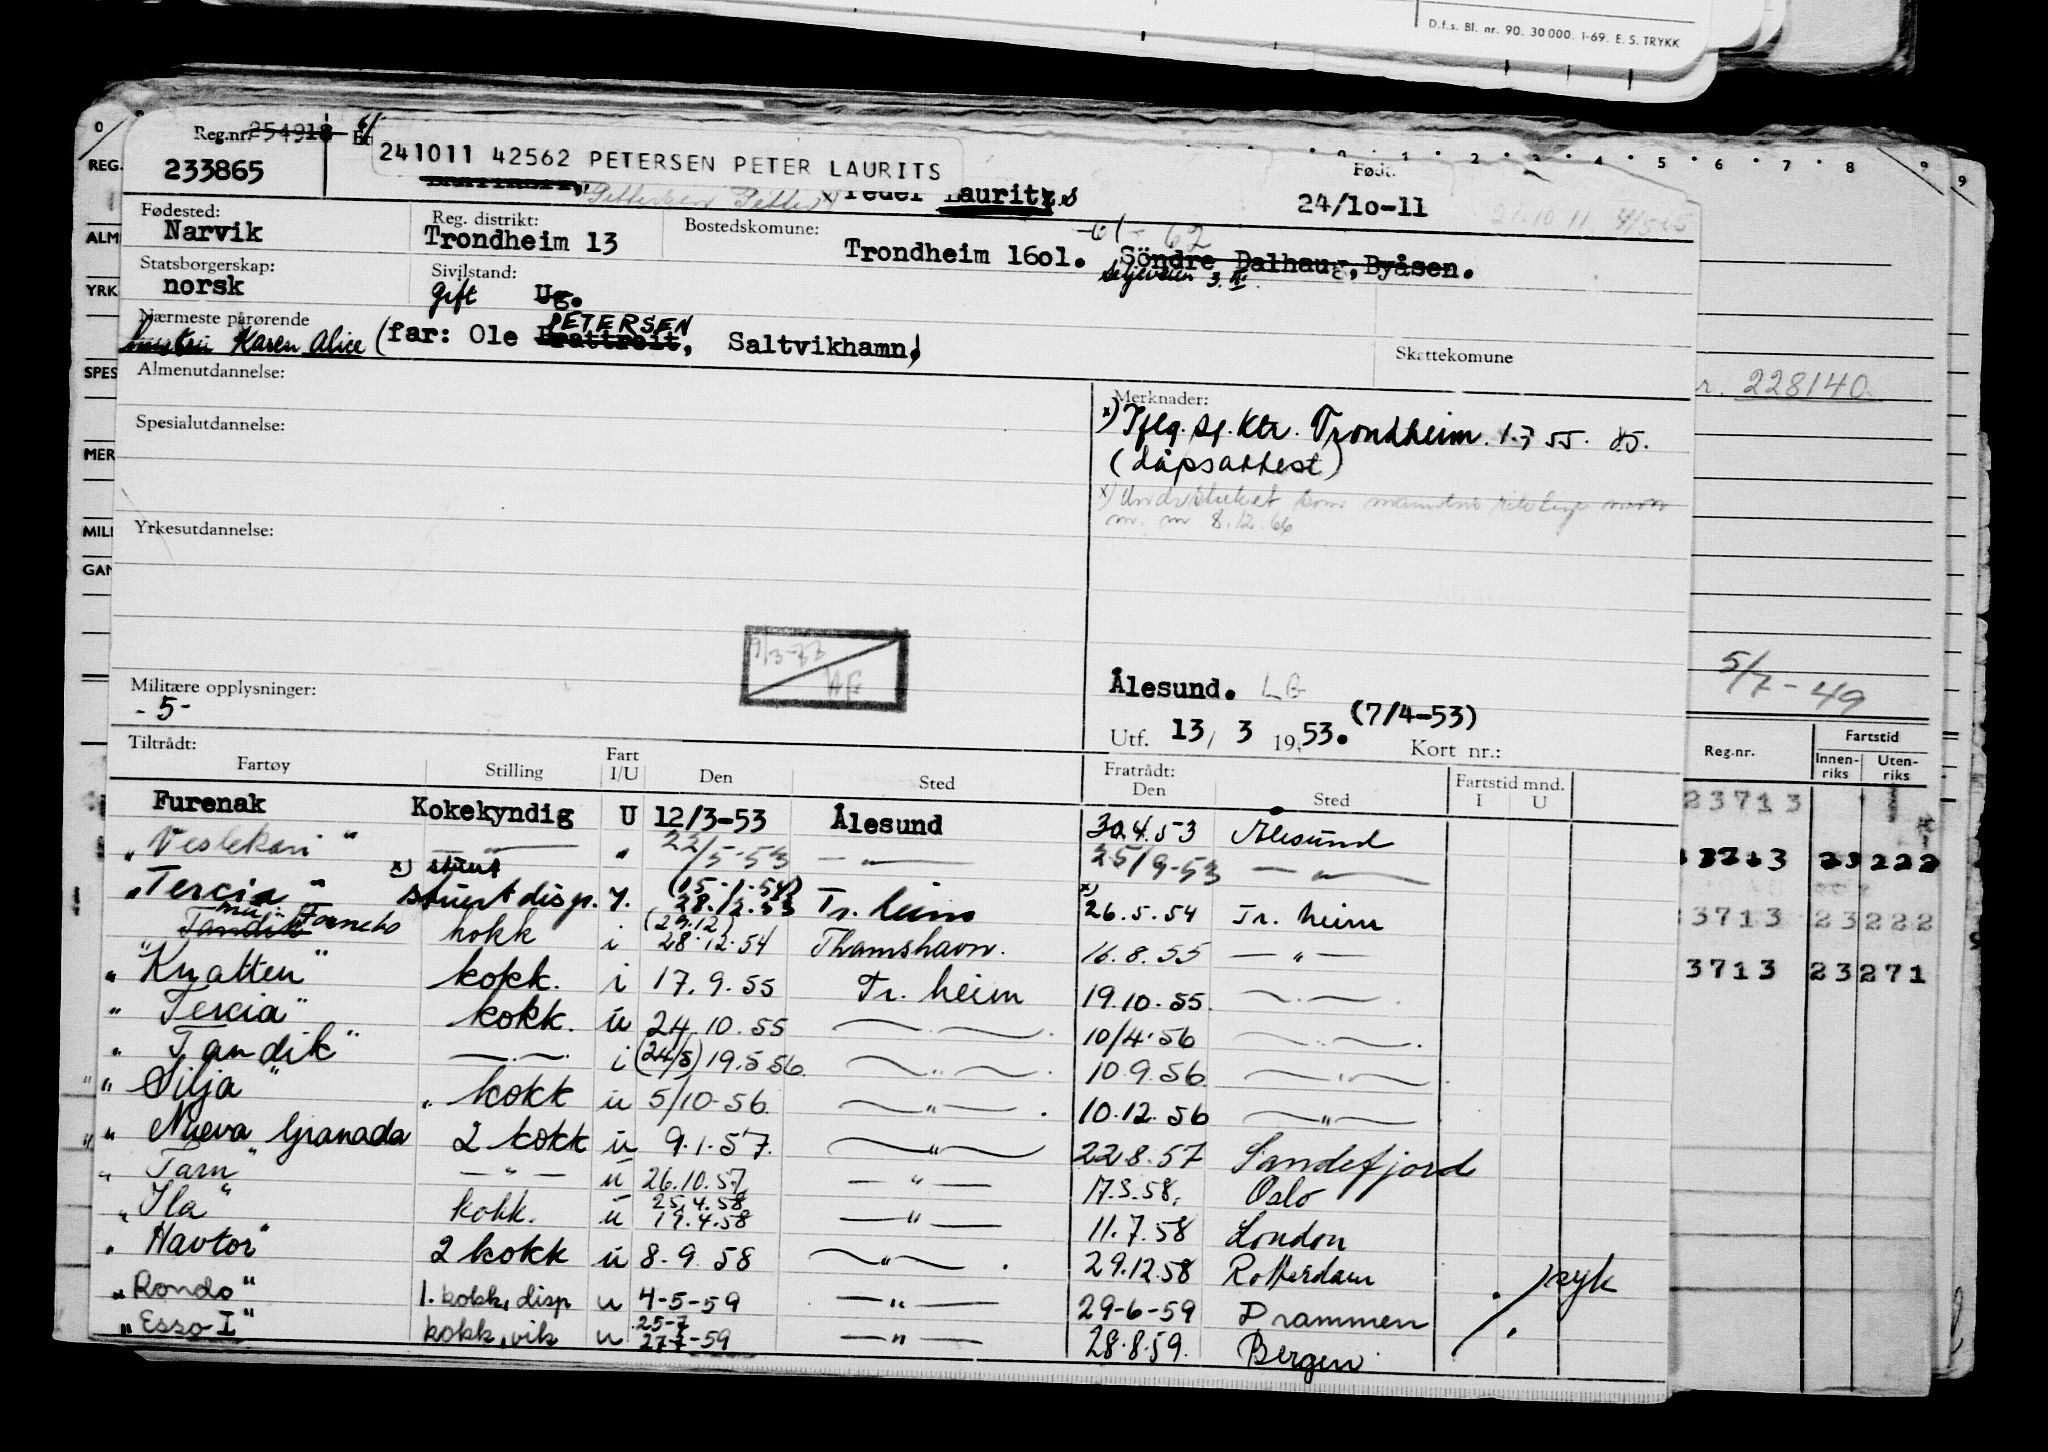 D.f.s. Bl. nr. 90. 30 000. 1-69. E. S. TRYKK
Reg.nr. 254918
233865
241011 42562 PETERSEN PETER LAURITS
Peder Laurits
Født.
24/10-11
Fødested:
Narvik
Reg. distrikt:
Trondheim 13
Bostedskomune:
Trondheim 1601. Söndre Dalhaug, Byåsen.
-61-62
Statsborgerskap:
norsk
Sivilstand:
gift Ug.
Nærmeste pårørende
Karen Alice (far: Ole Brattreit, PETERSEN Saltvikhamn)
Skattekomune
Almenutdannelse:
Spesialutdannelse:
Yrkesutdannelse:
Merknader:
x) Iflg. sj. ktr. Trondheim 1.7 55.
(dåpsattest)
8.12.66
Militære opplysninger:
-5-
Ålesund. LG
Utf. 13/ 3 1953. (7/4-53)
Kort nr.:
Tiltrådt:
Fartøy Stilling Fart I/U Den Sted Fratrådt: Den Sted Fartstid mnd. I U
Furenak Kokekyndig U 12/3-53 Ålesund 30.4.53 Ålesund
"Veslekari" — " — " 22/5-53 — " — 25/9-53 — " —
"Tercia" x) stuert stuert disp. (15-1-54) 28.12.53 Tr. heim x) 26.5.54 Tr. heim
Tandik Fornebo kokk i (29.12) 28.12.54 Thamshavn. 16.8.55 — " —
"Knatten" kokk. i 17.9.55 Tr. heim 19.10.55 — . —
"Tercia" kokk. u 24.10.55 — . — 10/4.56 — . —
"Tandik" — . — i (24/5) 19.5.56 — . — 10.9.56 — . —
"Silja" kokk u 5/10-56 — " — 10.12.56 — " —
"Nueva Granada" 2 kokk u 9.1.57 — " — 22.8.57 Sandefjord
"Tarn" — " — u 26.10.57 — " — 17.3.58 Oslo
"Ila" kokk. u 25.4.58 19.4.58 — " — 11.7.58 London
"Havtor" 2 kokk u 8.9.58 — " — 29.12.58 Rotterdam
"Rondo" 1. kokk, disp u 4-5-59 — " — 29-6-59 Drammen
"Esso I" kokk, vik u 25-7 27-7-59 — " — 28.8.59. Bergen
syk
REG.
ALM
YRK
SPES
MER
MILI
GAN
0 1 2 3 4 5 6 7 8 9
9
r. 228140
5/7-49
Reg.nr. Fartstid
Innenriks Utenriks
23713
3713 23222
3713 23222
3713 23271